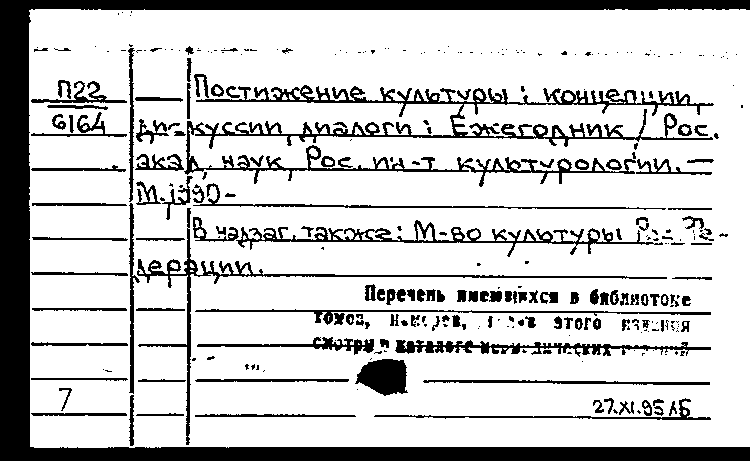 П22
6164
Постижение культуры: концепции,
дискуссии, диалоги: Ежегодник / Рос.
акад. наук, Рос. ин-т культурологии. —
М., 1990-
В надзаг. также: М-во культуры Рос. Фе-
дерации.
Перечень имеющихся в библиотеке
томов, номеров, этого издания
смотри в каталоге периодических изданий
7
27.XI.95 ЛБ